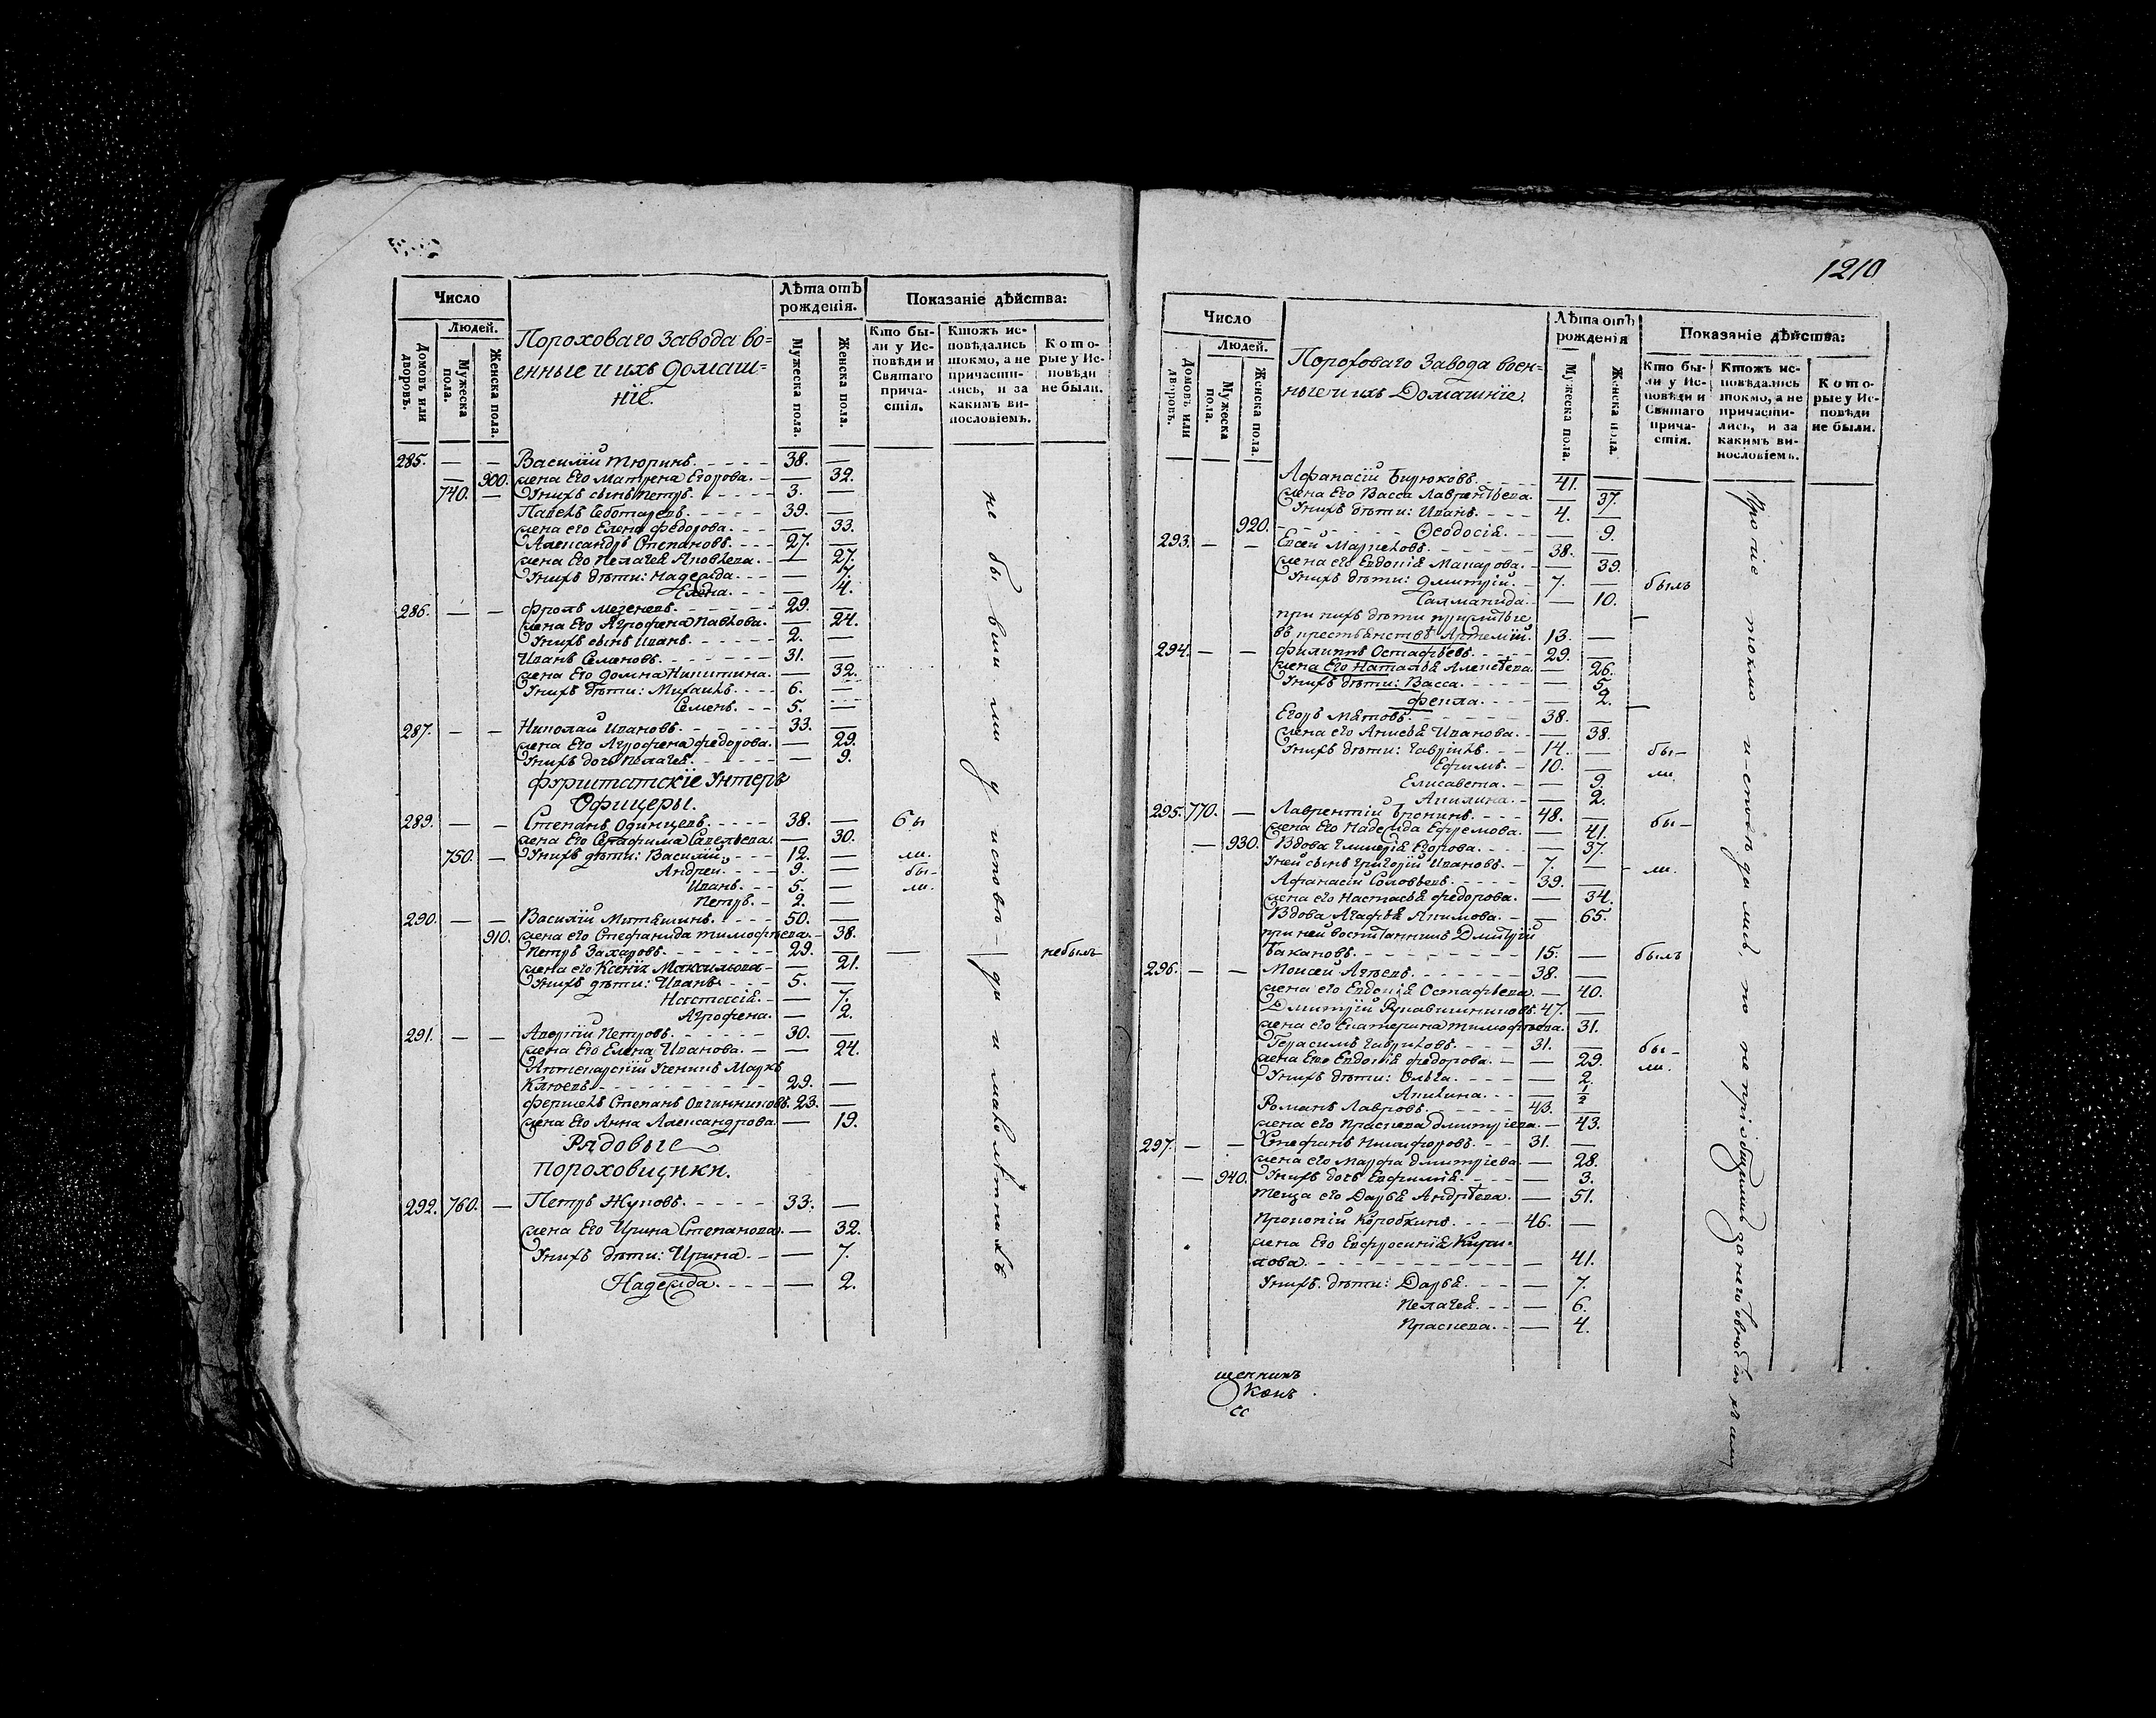 Число
Людей.
Домовъ или дворовъ.
Мужеска пола.
Женска пола.
Пороховаго Завода во=
енные и ихъ домаш=
ніе.
Лѣта отъ рожденія.
Мужеска пола.
Женска пола.
Показаніе дѣйства:
Кто бы-
ли у Ис-
повѣди и
Святаго
прича-
стія.
Ктожъ ис-
повѣдались
токмо, а не
причасти-
лись, и за
какимъ ви-
нословіемъ.
Кото-
рые у Ис-
повѣди
не были.
285. — — Василій Тюринъ. 38. —
— 900. жена Его Матрена Егорова. — 32.
740. — Унихъ сынъ Петръ. 3. —
Павелъ Чеботаревъ. 39. —
жена его Елена Федорова. — 33.
Александръ Степановъ. 27. —
жена Его Пелагея Яковлева. — 27.
Унихъ дѣти: Надежда. — 7.
Елена. — 4.
286. — — Фролъ Мезеневъ. 29. —
жена Его Агрофена Павлова. — 24.
Унихъ сынъ Иванъ. 2. —
Иванъ Семеновъ. 31. —
жена Его Домна Никитина. — 32.
Унихъ дѣти: Михаилъ. 6. —
Семенъ. 5. —
287. — — Николай Ивановъ. 33. —
жена Его Агрофена Федорова. — 29.
Унихъ дочь Пелагея. — 9.
Фурштатскіе Унтеръ
Офицеры.
289. — — Степанъ Одинцевъ. 38. — бы
жена Его Серафима Савельева. — 30.
750. — Унихъ дѣти: Василій. 12. — ли.
Андрей. 9. — бы-
Иванъ. 5. — ли.
Петръ. 2. —
290. — — Василій Митяшинъ. 50. —
910. жена его Стефанида Тимофѣева. — 38.
Петръ Захаровъ. 29. — — небылъ
жена его Ксенія Максимова — 21.
Унихъ дѣти: Иванъ. 5. —
Настасія. — 7.
Агрофена. — 2.
291. — — Аверкій Петровъ. 30. —
жена Его Елена Иванова. — 24.
Аптекарскій Ученикъ Маркъ
Клюевъ 29. —
Фершелъ Степанъ Овчинниковъ. 23. —
жена Его Анна Александрова — 19.
Рядовые
Пороховщики.
292. 760. — Петръ Жуковъ. 33. —
жена Его Ирина Степанова. — 32.
Унихъ дѣти: Ирина. — 7.
Надежда. — 2.
не бывили у исповѣ- ди и малолѣтнихъ
1210
Число
Людей.
Домовъ или дворовъ.
Мужеска пола.
Женска пола.
Пороховаго Завода воен=
ные и ихъ Домашніе.
Лѣта отъ рожденія
Мужеска пола.
Женска пола.
Показаніе дѣйства:
Кто бы-
ли у Ис-
повѣди и
Святаго
прича-
стія.
Ктожъ ис-
повѣдались
токмо, а не
причасти-
лись, и за
какимъ ви-
нословіемъ.
Кото-
рые у Ис-
повѣди
не были.
Афанасій Бирюковъ. 41. —
жена Его Васса Лаврентьева. — 37.
Унихъ дѣти: Иванъ. 4. —
920. Ѳеодосія. — 9.
293. — — Евсей Маркеловъ. 38. —
жена его Евдокія Макарова. — 39.
Унихъ дѣти: Дмитрій. 7. — былъ
Саламанида. — 10.
при нихъ дѣти
въ крестьянствѣ Артемій. 13. —
294. — — Филиппъ Остафьевъ. 29. —
жена Его Наталья Алексѣева. — 26.
Унихъ дѣти: Васса. — 5.
Фекла. — 2.
Егоръ Мятовъ. 38. —
жена его Анисья Иванова. — 38.
Унихъ дѣти: Гаврилъ. 14. — бы-
Ефимъ. 10. — ли.
Елисавета. — 9.
Акилина. — 2.
295. 770. — Лаврентій Бронинъ. 48. — бы-
жена Его Надежда Ефремова. — 41.
— 930. Вдова Гликерія Егорова. — 37.
Уней сынъ Григорій Ивановъ. 7. — ли.
Афанасій Соловьевъ. 39. —
жена его Настасья Федорова. — 34.
Вдова Агафья Акимова. — 65.
при ней воспитанникъ Дмитрій
Бакановъ. 15. — былъ
296. — — Моисей Агѣевъ. 38. —
жена его Евдокія Остафьева. — 40.
Дмитрій Рукавишниковъ. 47. —
жена его Екатерина Тимофѣева. 31.
Герасимъ Гавриловъ. 31. — бы-
жена Его Евдокія Федорова. — 29. ли.
Унихъ дѣти: Ольга. — 2.
Акилина. — ½
Романъ Лавровъ. 43. —
жена его Прасковья Дмитріева. — 43.
297. — — Стефанъ Никифоровъ. 31. —
жена его Марфа Дмитріева. — 28.
— 940. Унихъ дочь Евфимія. — 3.
теща его Дарья Андрѣева. — 51.
Прокопій Коробкинъ. 46. —
жена Его Евфросинія Кири-
лова. — 41.
Унихъ дѣти: Дарья. — 7.
Пелагея. — 6.
Прасковья. — 4.
Прочіе токмо исповѣдались, но не пріобщились за неговѣніемъ
щенникъ